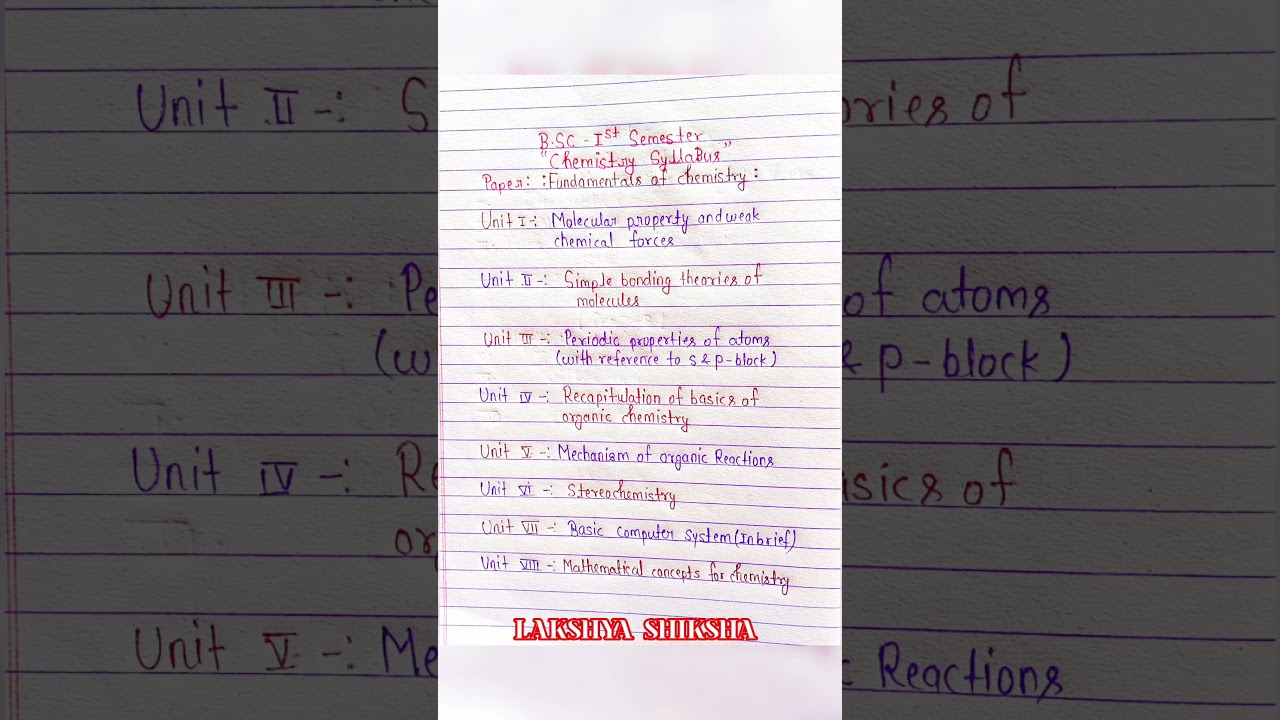 B.SC - Ist Semester
"Chemistry SyllaBus"
Paper: :Fundamentals of chemistry:
Unit I-: Molecular property and weak
chemical forces
Unit II-: Simple bonding theories of
molecules
Unit III-: Periodic properties of atoms
(with reference to s & p-block)
Unit IV-: Recapitulation of basics of
organic chemistry
Unit V-: Mechanism of organic Reactions
Unit VI-: Stereochemistry
Unit VII-: Basic computer system(In brief)
Unit VIII-: Mathematical concepts for chemistry
LAKSHYA SHIKSHA
Unit II-: S
ories of
Unit III-: Pe
of atoms
(w
& p-block)
Unit IV-: Re
sics of
or
Unit V-: Me
Reactions